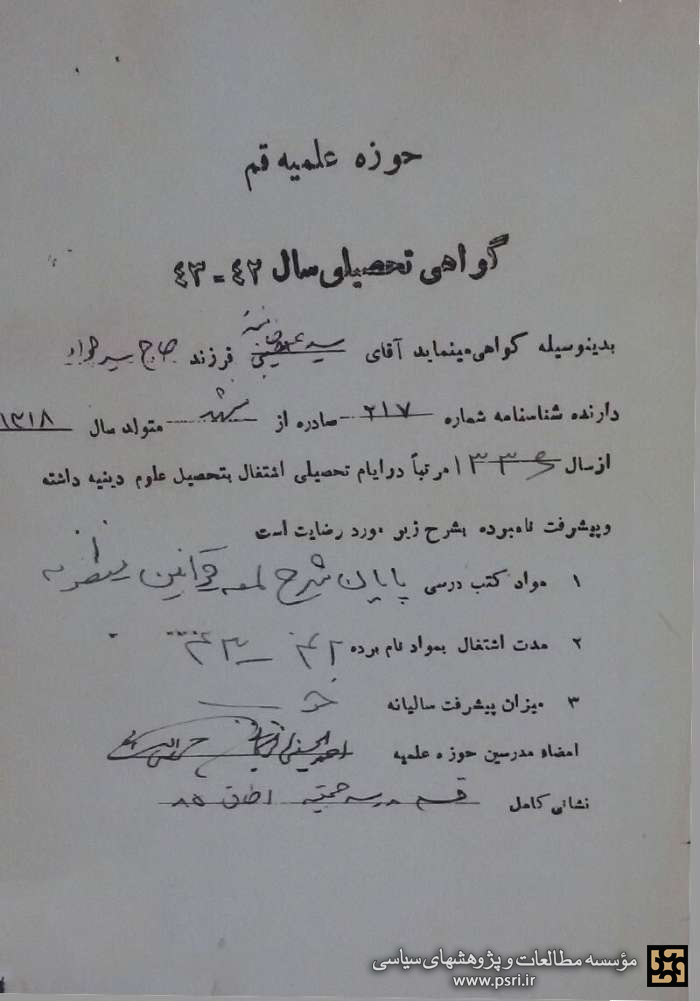 حوزه علمیه قم
گواهی تحصیلی سال ۴۲ - ۴۳
بدینوسیله گواهی مینماید آقای سید فرزند حاج سید جواد
دارنده شناسنامه شماره ۲۱۷ صادره از مشهد متولد سال ۱۳۱۸
از سال ۱۳۳۶ مرتباً در ایام تحصیلی اشتغال بتحصیل علوم دینیه داشته
و پیشرفت نامبرده بشرح زیر مورد رضایت است
۱ مواد کتب درسی پایان شرح لمعه قوانین منظومه
۲ مدت اشتغال بمواد نام برده ۴۲ - ۴۳
۳ میزان پیشرفت سالیانه خوب
امضاء مدرسین حوزه علمیه
نشانی کامل قم مدرسه حجتیه اطاق ۸۵
مؤسسه مطالعات و پژوهشهای سیاسی
www.psri.ir